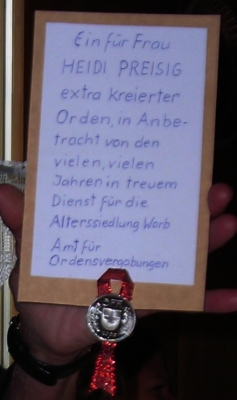 Ein für Frau
HEIDI PREISIG
extra kreierter
Orden, in Anbe-
tracht von den
vielen, vielen
Jahren in treuem
Dienst für die
Alterssiedlung Worb
Amt für
Ordensvergabungen